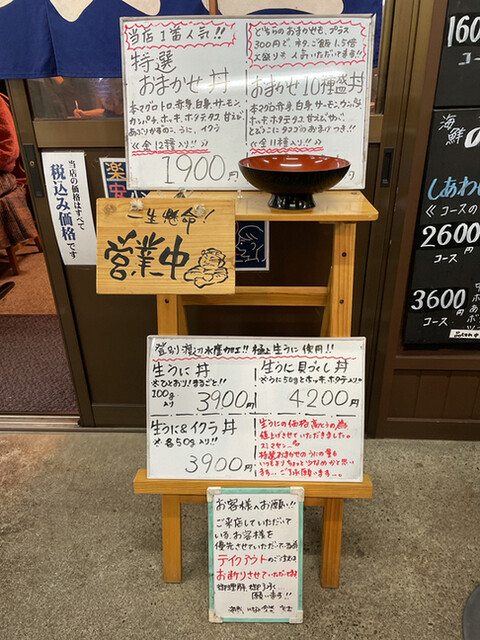 当店1番人気!!
特選
おまかせ丼
本マグロトロ、赤身、白身、サーモン、
カンパチ、ホッキ、ホタテ、タコ、甘えび
うに、イクラ
≪全12種入り!!≫
1900円
どちらのおまかせも、プラス
300円で、ネタ、ご飯1.5倍
大盛りも人気いただいてます!!
おまかせ10種盛丼
本マグロ赤身、白身、サーモン、
ホッキ、ホタテ、タコ、甘えび、
≪全11種入り!!≫
当店の価格はすべて
税込み価格です
一生懸命!
営業中
生うに使用!!
生うに丼
100g
入り
3900円
生うに貝づくし丼
※うに50gとホッキ、ホタテ入り!!
4200円
生うに&イクラ丼
※各50g入り!!
3900円
生うにの価格高とうの為
値上げさせていただきました。
スミマセン…
特選おまかせのうにの量も
いつもよりちょっと少なめかと思い
ます… ご了承願います…
お客様へお願い!!
ご来店していただいて
いる、お客様を
優先させていただいている為
テイクアウトのご注文は
お断りさせていただいてます
願います!!
160
コース
海鮮
しあわ
≪コースの
2600円
コース
3600円
コース